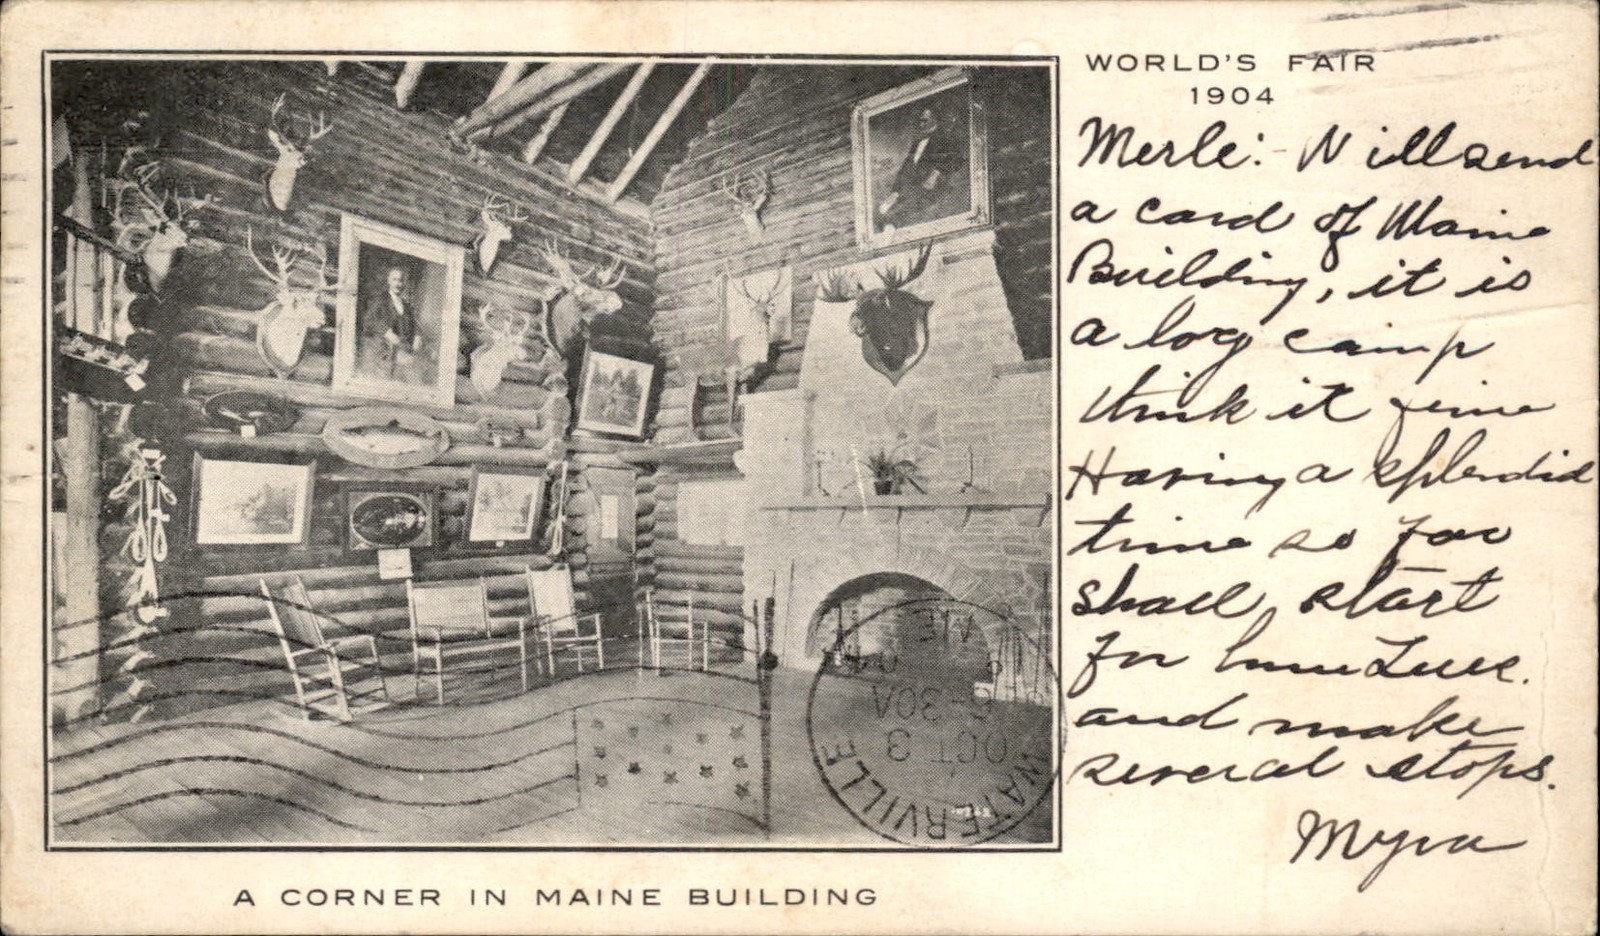 WORLD'S FAIR
1904
Merle:- Will send
a card of Maine
Building, it is
a log camp
think it fine
Having a splendid
time so far
shall start
for home Tues.
and make
several stops.
Myra
WATERVILLE
OCT 3
6-30A
ME
A CORNER IN MAINE BUILDING